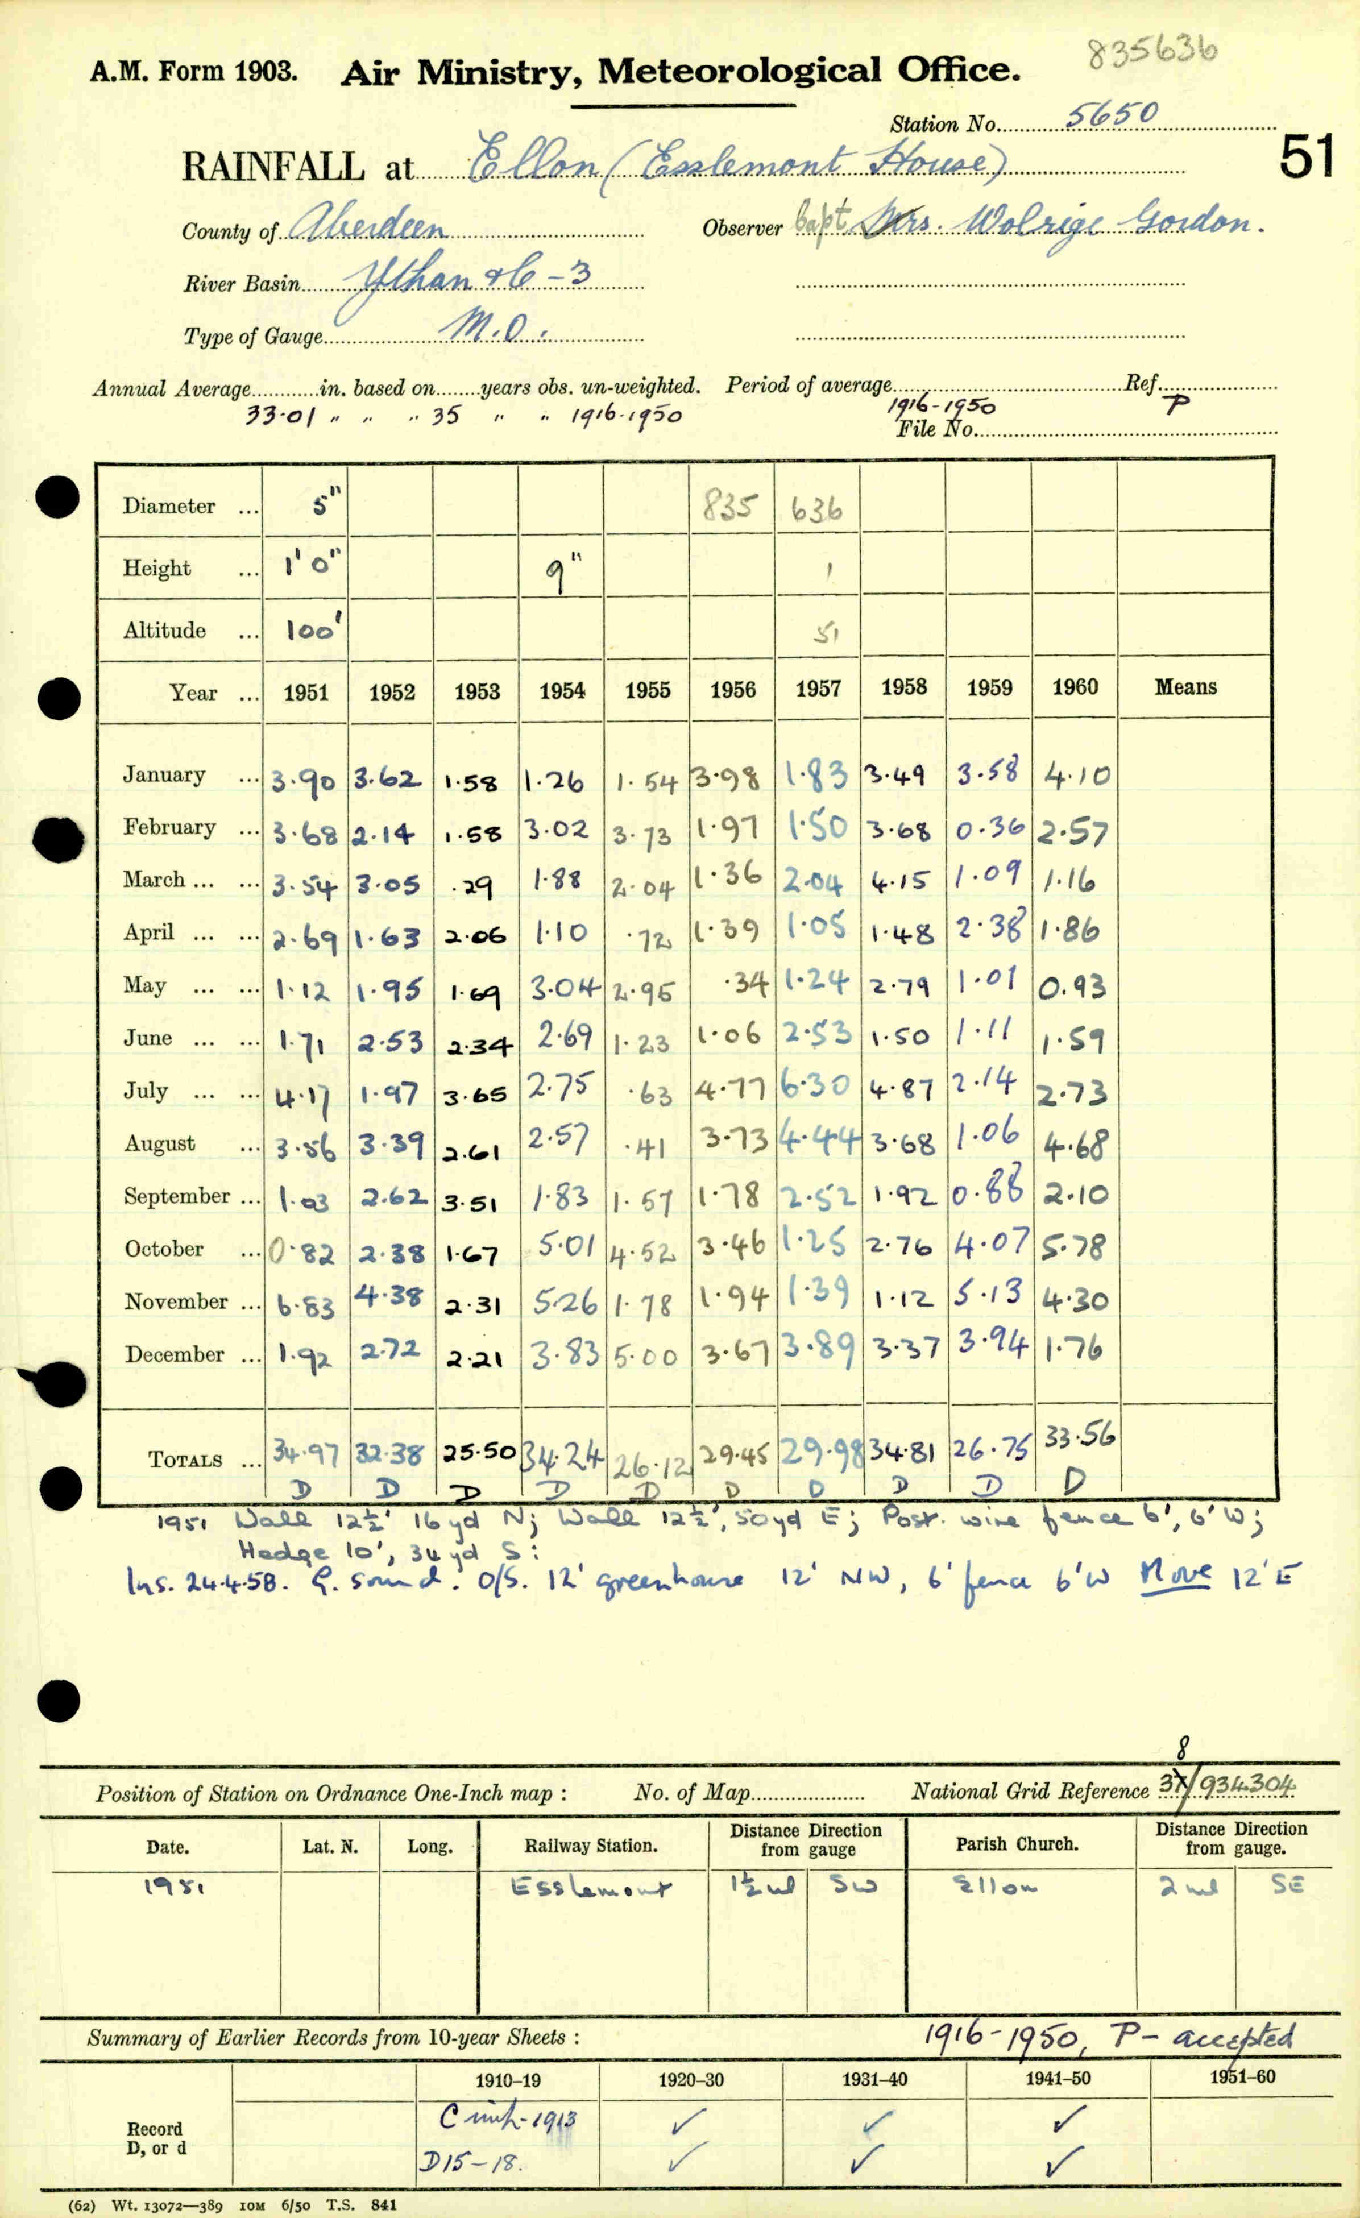 835636
A.M. Form 1903. Air Ministry, Meteorological Office.
Station No. 5650
51
RAINFALL at Ellon (Esslemont House)
County of Aberdeen Observer Capt Mrs. Wolrige Gordon.
River Basin Ythan &c - 3
Type of Gauge M.O.
Annual Average in. based on years obs. un-weighted. Period of average Ref.
33.01 " " " 35 " " 1916-1950 1916-1950 P
File No.
Diameter ... 5" 835 636
Height ... 1' 0" 9" 1
Altitude ... 100' 51
Year ... 1951 1952 1953 1954 1955 1956 1957 1958 1959 1960 Means
January ... 3.90 3.62 1.58 1.26 1.54 3.98 1.83 3.49 3.58 4.10
February ... 3.68 2.14 1.58 3.02 3.73 1.97 1.50 3.68 0.36 2.57
March ... ... 3.54 3.05 .29 1.88 2.04 1.36 2.04 4.15 1.09 1.16
April ... ... 2.69 1.63 2.06 1.10 .72 1.39 1.05 1.48 2.38 1.86
May ... ... 1.12 1.95 1.69 3.04 2.95 .34 1.24 2.79 1.01 0.93
June ... ... 1.71 2.53 2.34 2.69 1.23 1.06 2.53 1.50 1.11 1.59
July ... ... 4.17 1.97 3.65 2.75 .63 4.77 6.30 4.87 2.14 2.73
August ... 3.56 3.39 2.61 2.57 .41 3.73 4.44 3.68 1.06 4.68
September ... 1.03 2.62 3.51 1.83 1.57 1.78 2.52 1.92 0.88 2.10
October ... 0.82 2.38 1.67 5.01 4.52 3.46 1.25 2.76 4.07 5.78
November ... 6.83 4.38 2.31 5.26 1.78 1.94 1.39 1.12 5.13 4.30
December ... 1.92 2.72 2.21 3.83 5.00 3.67 3.89 3.37 3.94 1.76
TOTALS ... 34.97 32.38 25.50 34.24 26.12 29.45 29.98 34.81 26.75 33.56
D D D D D D D D D D
1951 Wall 12½' 16 yd N; Wall 12½', 50 yd E; Post. wire fence 6', 6' W;
Hedge 10', 34 yd S:
Ins. 24.4.58. G. sound. O/S. 12' greenhouse 12' NW, 6' fence 6'W Move 12'E
8
Position of Station on Ordnance One-Inch map : No. of Map National Grid Reference 37/934304
Date. Lat. N. Long. Railway Station. Distance from gauge Direction Parish Church. Distance from gauge. Direction
1951 Esslemont 1½ ml SW Ellon 2 ml SE
Summary of Earlier Records from 10-year Sheets : 1916-1950, P- accepted
1910–19 1920–30 1931–40 1941–50 1951–60
Record C inch-1913 ✓ ✓ ✓
D, or d D15-18. ✓ ✓ ✓
(62) Wt. 13072—389 10M 6/50 T.S. 841